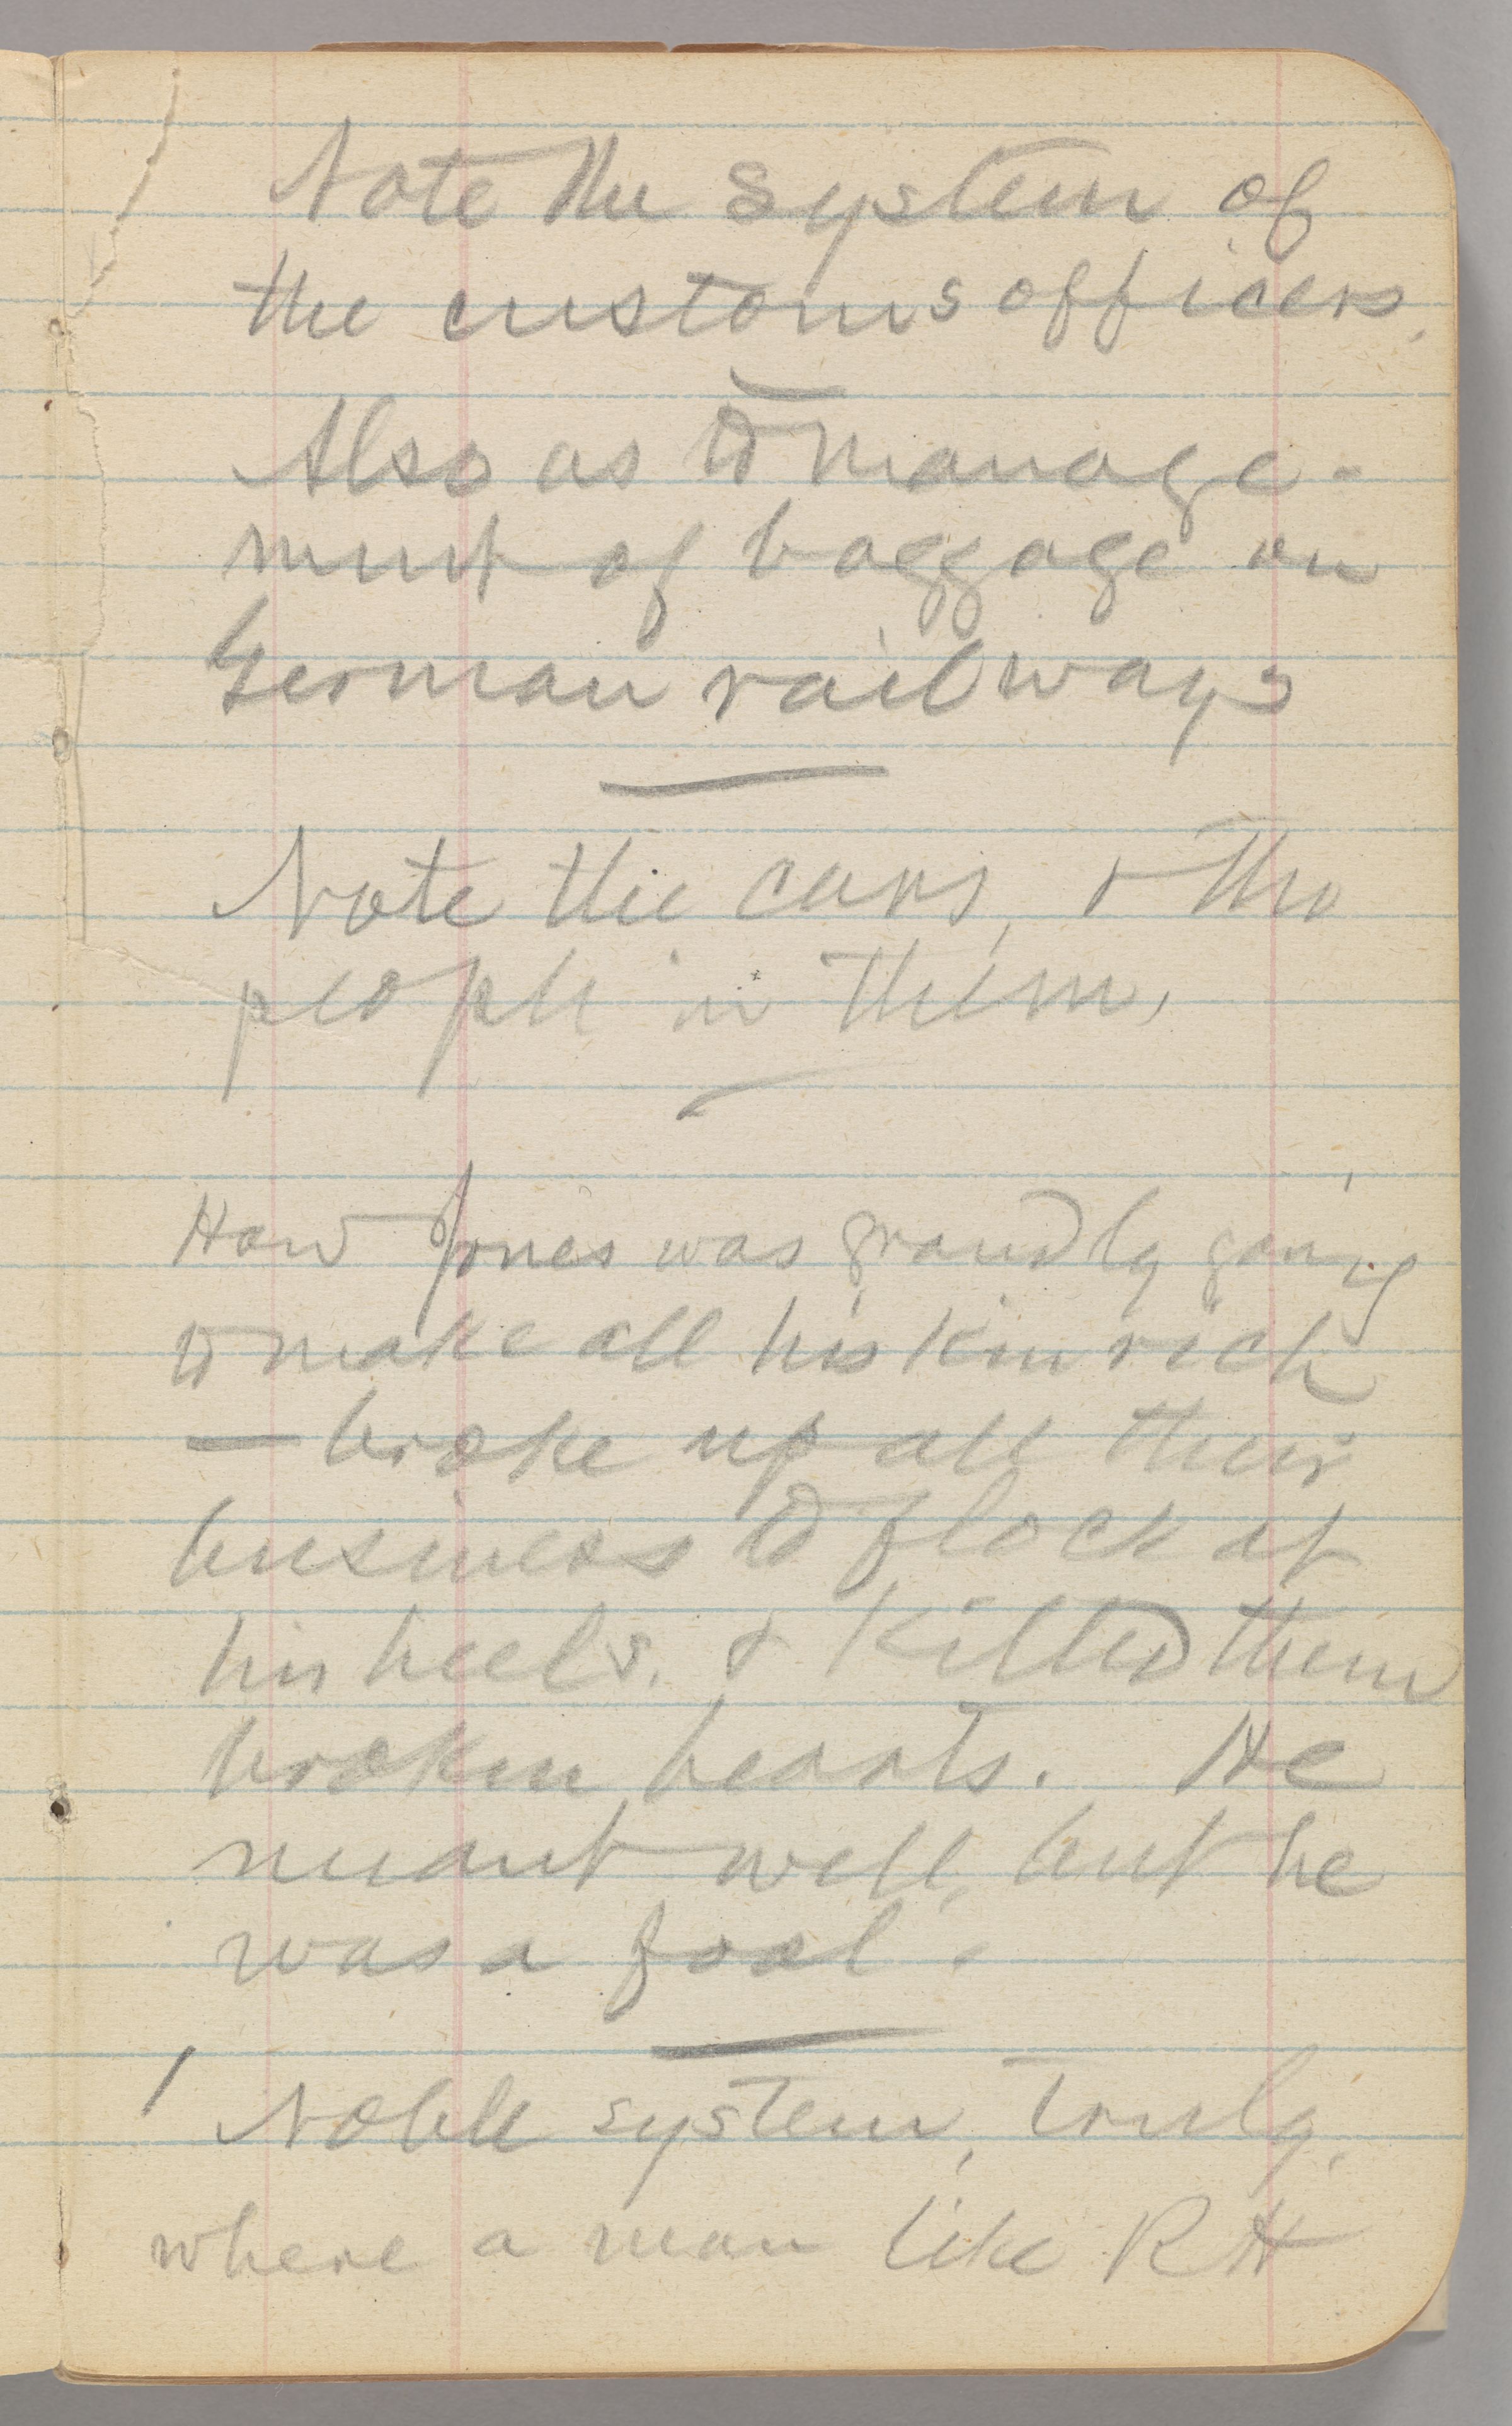 Note the system of
the customs officers.
Also as to manage-
ment of baggage on
German railways
Note the cars, & the
people in them.
How Jones was grandly going
to make all his kin rich
— broke up all their
business to flock at
his heels, & killed them
broken hearts. He
meant well, but he
was a fool.
Noble system, truly,
where a man like RH